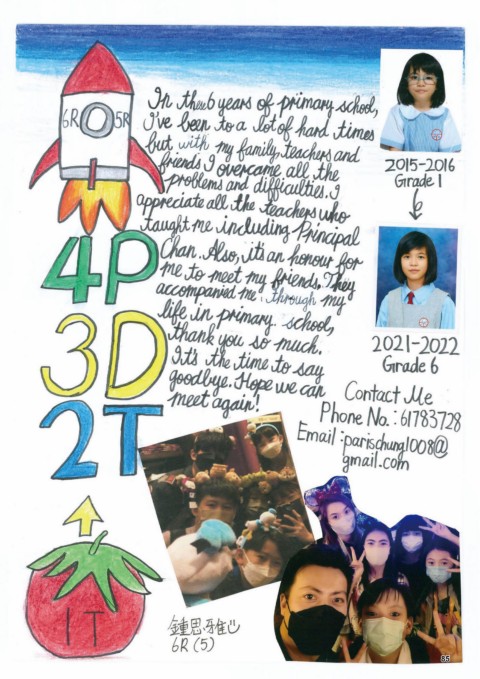 6R 5R
4P
3D
2T
1T
In these 6 years of primary school,
I've been to a lot of hard times
but with my family, teachers and
friends I overcame all the
problems and difficulties. I
appreciate all the teachers who
taught me including Principal
Chan. Also, it's an honour for
me to meet my friends. They
accompanied me through my
life in primary school,
thank you so much.
It's the time to say
goodbye. Hope we can
meet again!
2015-2016
Grade 1
2021-2022
Grade 6
Contact Me
Phone No.: 61783728
Email: parischung1008@
gmail.com
鍾思雅心
6R (5)
85